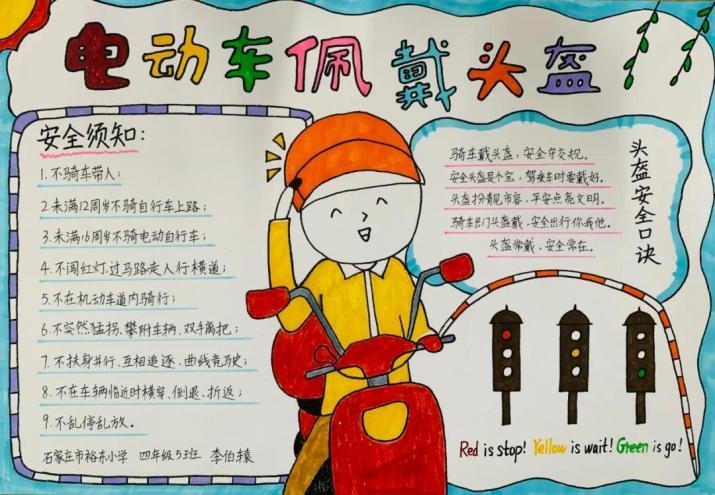 电动车佩戴头盔
安全须知:
1.不骑车带人;
2.未满12周岁不骑自行车上路;
3.未满16周岁不骑电动自行车;
4.不闯红灯,过马路走人行横道;
5.不在机动车道内骑行;
6.不突然猛拐、攀附车辆、双手离把;
7.不扶身并行、互相追逐、曲线竞驶;
8.不在车辆临近时横穿、倒退、折返;
9.不乱停乱放。
石家庄市裕东小学 四年级5班 李伯
头盔安全口诀
骑车戴头盔,安全守交规。
安全头盔是个宝,驾乘车时要戴好。
头盔扮靓见市容,平安点亮文明。
骑车出门头盔戴,安全出行你我他。
头盔常戴,安全常在。
Red is stop! Yellow is wait! Green is go!